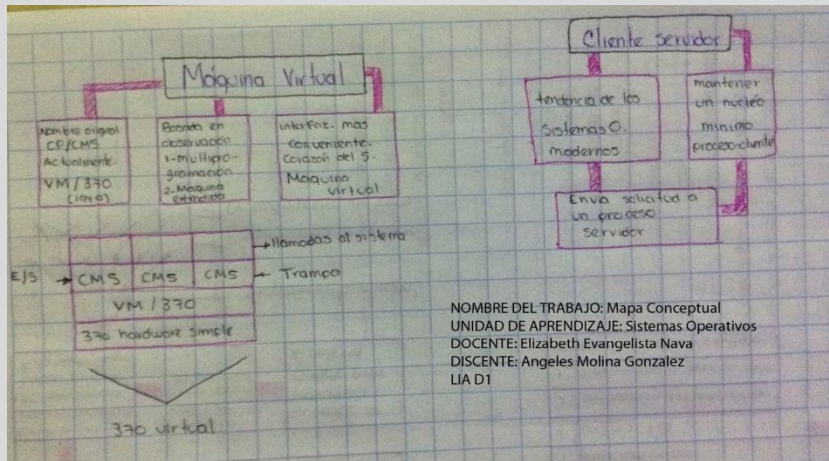 Máquina Virtual
Nombre original
CP/CMS
Actualmente.
VM/370
Basada en
observación
1.-multipro-
gramación
2.-Máquina
extendida
interfaz. mas
conveniente.
Corazón del S.
Máquina
virtual
llamadas al sistema
E/S
CMS
CMS
CMS
Trampa
VM/370
370 hardware simple
370 virtual
Cliente servidor
tendencia de los
Sistemas O.
modernos
mantener
un nucleó
minimo
proceso-cliente
Envia solicitud a
un proceso
servidor
NOMBRE DEL TRABAJO: Mapa Conceptual
UNIDAD DE APRENDIZAJE: Sistemas Operativos
DOCENTE: Elizabeth Evangelista Nava
DISCENTE: Angeles Molina Gonzalez
LIA D1